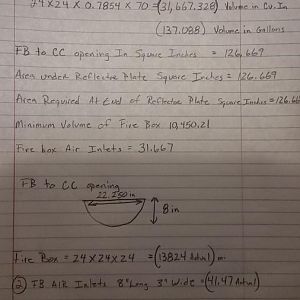 24 x 24 x 0.7854 x 70 = (31,667.328) Volume in Cu. In
(137.088) Volume in Gallons
FB to CC opening In Square Inches = 126.669
Area under Reflector Plate Square Inches = 126.669
Area Required At End of Reflector Plate Square Inches = 126.66
Minimum Volume of Fire Box 10,450.21
Fire box Air Inlets = 31.667
FB to CC opening
22.250 in
8 in
Fire Box = 24 x 24 x 24 = (13824 Actual)
② FB AIR Inlets 8" Long 3" Wide = (41.47 Actual)